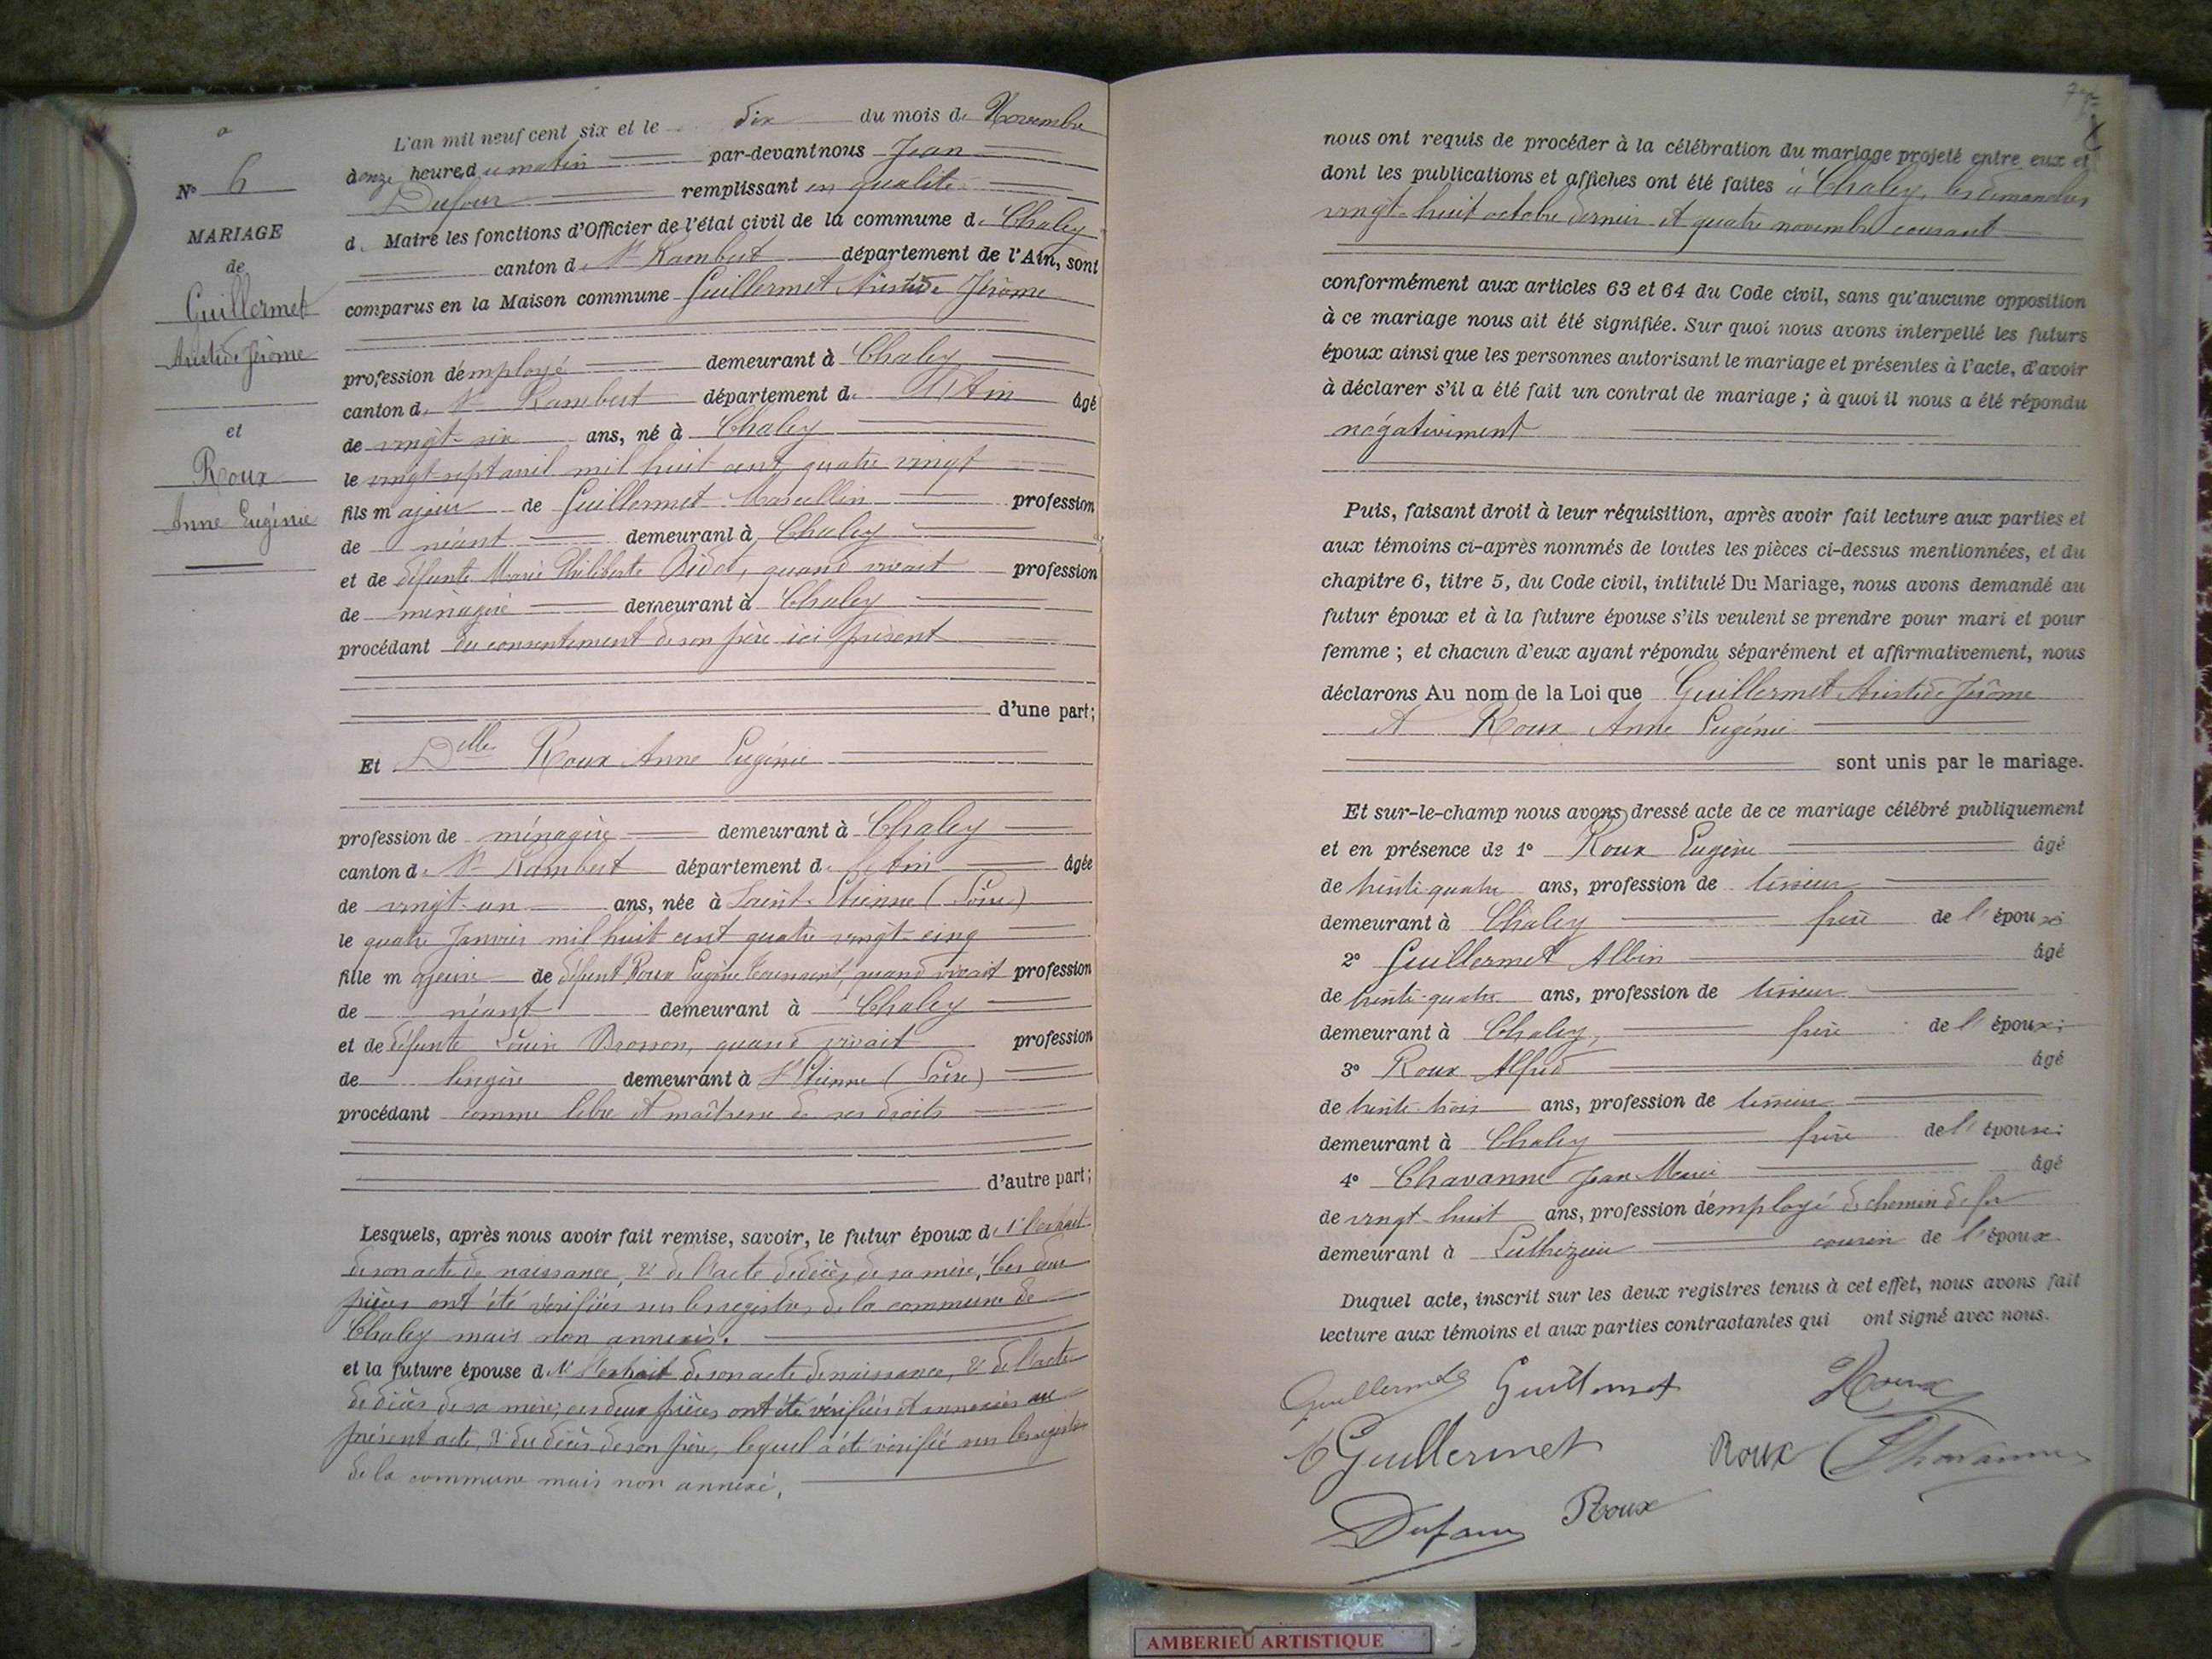 N° 6
MARIAGE
de
Guillermet
Aristide Jérôme
et
Roux
Anne Eugénie
L'an mil neuf cent six et le dix du mois de Novembre
à onze heures du matin par-devant nous Jean
Dufour remplissant en qualité
de Maire les fonctions d'Officier de l'état civil de la commune de Chaley
canton de St Rambert département de l'Ain, sont
comparus en la Maison commune Guillermet Aristide Jérôme
profession d'employé demeurant à Chaley
canton de St Rambert département de l'Ain âgé
de vingt-six ans, né à Chaley
le vingt-sept avril mil huit cent quatre vingt
fils majeur de Guillermet Marcellin profession
de néant demeurant à Chaley
et de défunte Marie Philiberte quand vivait profession
de ménagère demeurant à Chaley
procédant du consentement de son père ici présent
d'une part;
Et Delle Roux Anne Eugénie
profession de ménagère demeurant à Chaley
canton de St Rambert département de l'Ain âgée
de vingt-un ans, née à Saint-Etienne (Loire)
le quatre Janvier mil huit cent quatre vingt-cinq
fille majeure de défunt Roux Eugène Toussaint, quand vivait profession
de néant demeurant à Chaley
et de défunte Louise Brosson, quand vivait profession
de lingère demeurant à St Etienne (Loire)
procédant comme libre et maîtresse de ses droits
d'autre part;
Lesquels, après nous avoir fait remise, savoir, le futur époux de 1° l'extrait
de son acte de naissance, 2° de l'acte de décès de sa mère, les deux
pièces ont été vérifiées sur les registres de la commune de
Chaley mais non annexés.
et la future épouse de 1° l'extrait de son acte de naissance, 2° de l'acte
de décès de sa mère; ces deux pièces ont été vérifiées et annexées au
présent acte, 3° du décès de son père, lequel a été vérifié sur les registres
de la commune mais non annexé,
nous ont requis de procéder à la célébration du mariage projeté entre eux et
dont les publications et affiches ont été faites à Chaley, les dimanches
vingt-huit octobre dernier et quatre novembre courant
conformément aux articles 63 et 64 du Code civil, sans qu'aucune opposition
à ce mariage nous ait été signifiée. Sur quoi nous avons interpellé les futurs
époux ainsi que les personnes autorisant le mariage et présentes à l'acte, d'avoir
à déclarer s'il a été fait un contrat de mariage; à quoi il nous a été répondu
négativement
Puis, faisant droit à leur réquisition, après avoir fait lecture aux parties et
aux témoins ci-après nommés de toutes les pièces ci-dessus mentionnées, et du
chapitre 6, titre 5, du Code civil, intitulé Du Mariage, nous avons demandé au
futur époux et à la future épouse s'ils veulent se prendre pour mari et pour
femme; et chacun d'eux ayant répondu séparément et affirmativement, nous
déclarons Au nom de la Loi que Guillermet Aristide Jérôme
et Roux Anne Eugénie
sont unis par le mariage.
Et sur-le-champ nous avons dressé acte de ce mariage célébré publiquement
et en présence de 1° Roux Eugène âgé
de trente-quatre ans, profession de tisseur
demeurant à Chaley frère de l'épouse
2° Guillermet Albin âgé
de trente-quatre ans, profession de tisseur
demeurant à Chaley, frère de l'époux;
3° Roux Alfred âgé
de trente-trois ans, profession de tisseur
demeurant à Chaley frère de l'épouse;
4° Chavanne Jean Marie âgé
de vingt-huit ans, profession d'employé de chemin de fer
demeurant à cousin de l'époux.
Duquel acte, inscrit sur les deux registres tenus à cet effet, nous avons fait
lecture aux témoins et aux parties contractantes qui ont signé avec nous.
Guillermet Guillermet Roux
Guillermet Roux Chavanne
Dufour Roux
AMBERIEU ARTISTIQUE